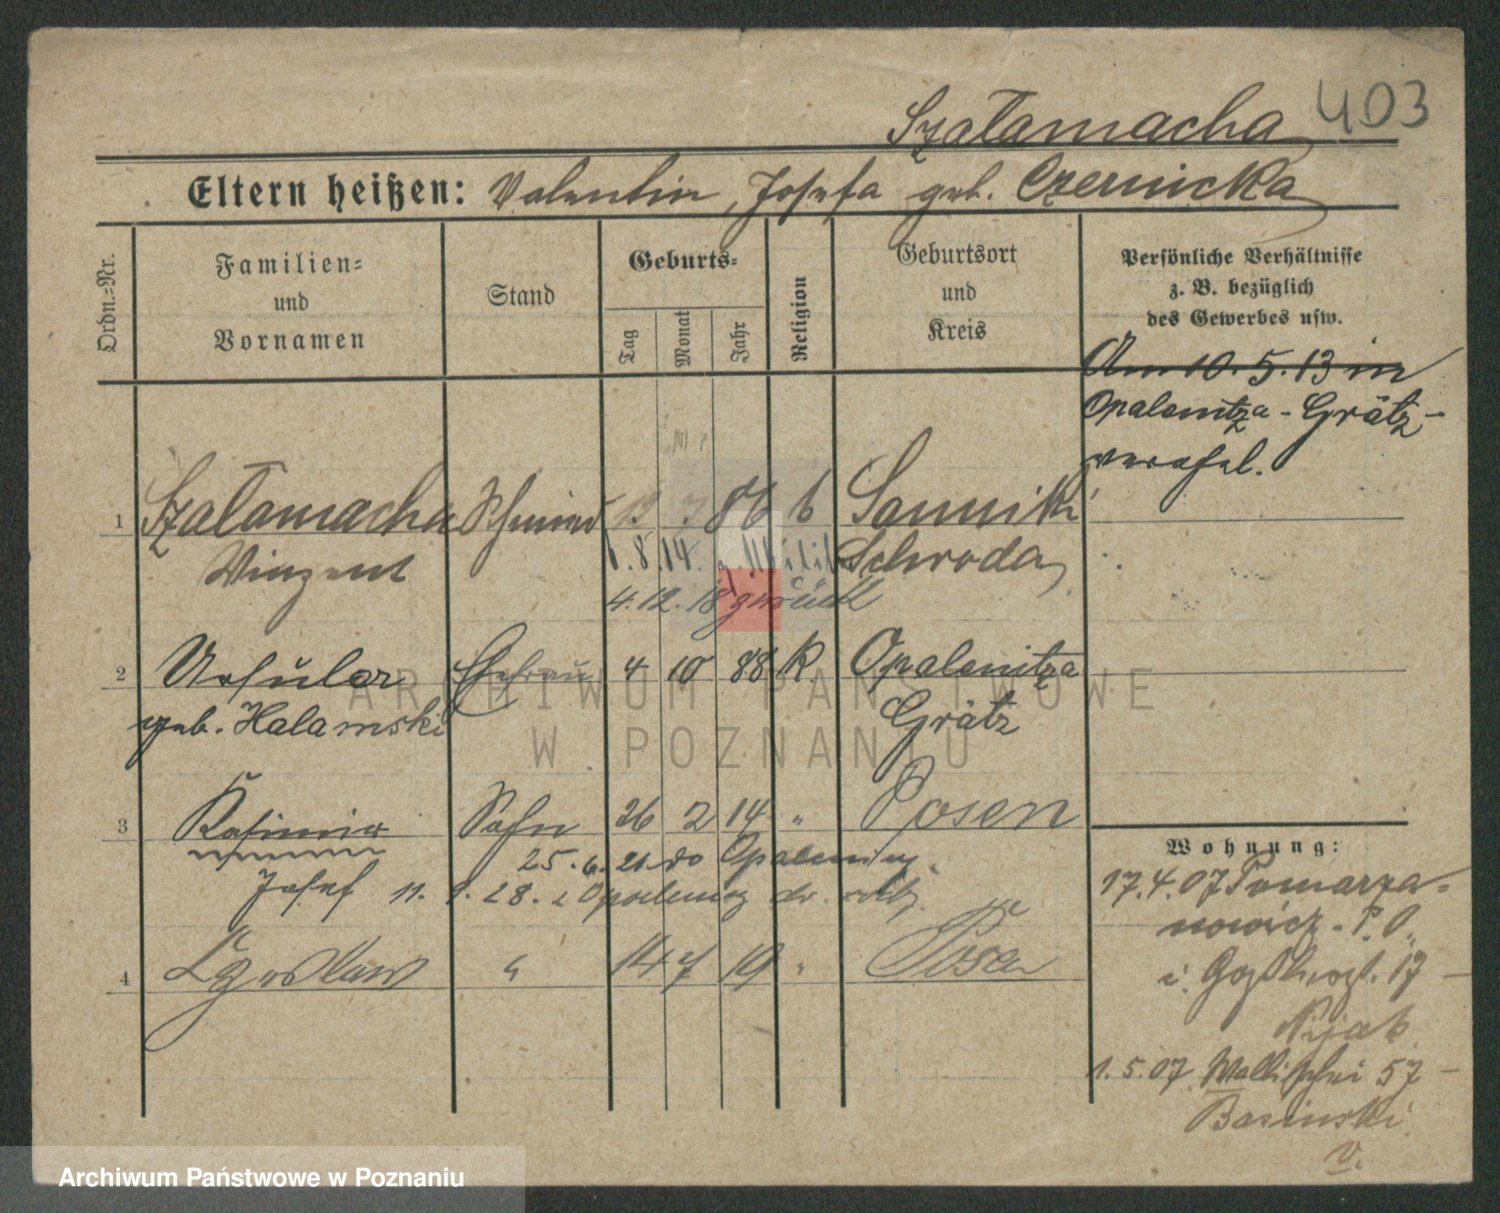 Szałamacha 403
Eltern heißen: Valentin, Josefa geb. Czernicka
Ordn.-Nr.
Familien- und Vornamen
Stand
Geburts-
Tag
Monat
Jahr
Religion
Geburtsort und Kreis
Persönliche Verhältnisse
z. B. bezüglich
des Gewerbes usw.
Am 10.5.13 in
Opalenitza - Grätz -
verehel.
1 Szałamacha Schmied 86 Sannitki
Winzent Schroda
1.8.14.
4.12.18 zurück
2 Ursula Ehefrau 4 10 88 K Opalenitza
geb. Halamski Grätz
3 Kasimir Sohn 26 2 14 " Posen
25.6.21 do Opalenicy
Josef 11.1.28. z Opalenicy
4 Czesław " 14 7 19 " Posen
Wohnung:
17.4.07 Pomarza-
nowicz - P. O.
i. 17
1.5.07 Wallischei 57
Basinski
v.
ARCHIWUM PAŃSTWOWE
W POZNANIU
Archiwum Państwowe w Poznaniu